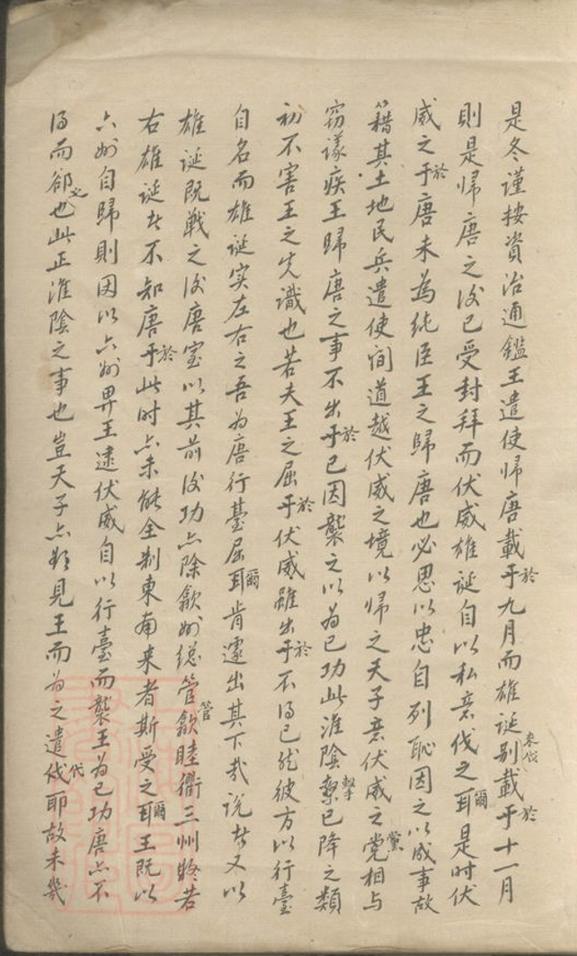 是冬謹按資治通鑑王遣使帰唐載于於九月而雄诞别來伐載于於十一月
則是帰唐之後已受封拜而伏威雄诞自以私意伐之耳爾是时伏
威之于於唐未為純臣王之歸唐也必思以忠自列恥因之以成事故
籍其土地民兵遣使间道越伏威之境以帰之天子意伏威之党黨相与
窃議疾王歸唐之事不出于於已因襲之以為已功此淮陰擊已降之類
初不害王之先識也若夫王之屈于於伏威雖出于於不得已然彼方以行臺
自名而雄诞实左右之吾為唐行臺屈耳爾肯遽出其下哉说者又以
雄诞既戰之後唐室以其前後功亦除歙州總管管歙睦衢三州將若
右雄诞者不知唐于於此时亦未能全制東南来者斯受之耳爾王既以
六州自歸則因以六州畀王逮伏威自以行臺而襲王為已功唐亦不
得而卻也此正淮陰之事也豈天子亦欲見王而為之遣伐代耶故未幾